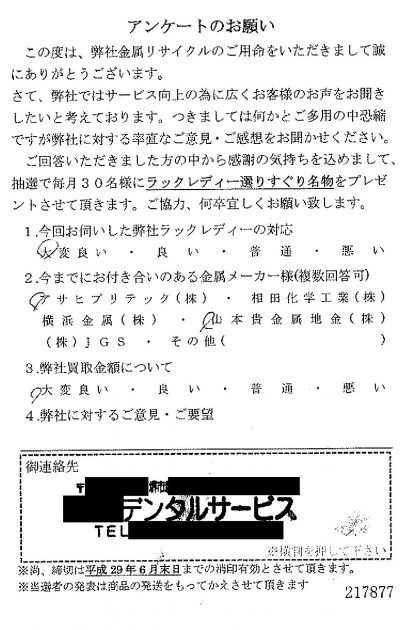 アンケートのお願い
この度は、弊社金属リサイクルのご用命をいただきまして誠
にありがとうございます。
さて、弊社ではサービス向上の為に広くお客様のお声をお聞き
したいと考えております。つきましては何かとご多用の中恐縮
ですが弊社に対する率直なご意見・ご感想をお聞かせください。
ご回答いただきました方の中から感謝の気持ちを込めまして、
抽選で毎月30名様にラックレディー選りすぐり名物をプレゼ
ントさせて頂きます。ご協力、何卒宜しくお願い致します。
1.今回お伺いした弊社ラックレディーの対応
大変良い ・ 良い ・ 普通 ・ 悪い
2.今までにお付き合いのある金属メーカー様(複数回答可)
アサヒプリテック(株) ・ 相田化学工業(株)
横浜金属(株) ・ 山本貴金属地金(株)
(株)JGS ・ その他( )
3.弊社買取金額について
大変良い ・ 良い ・ 普通 ・ 悪い
4.弊社に対するご意見・ご要望
御連絡先
〒
デンタルサービス
TEL
※横判を押して下さい
※尚、締切は平成29年6月末日までの消印有効とさせて頂きます。
※当選者の発表は商品の発送をもってかえさせて頂きます
217877